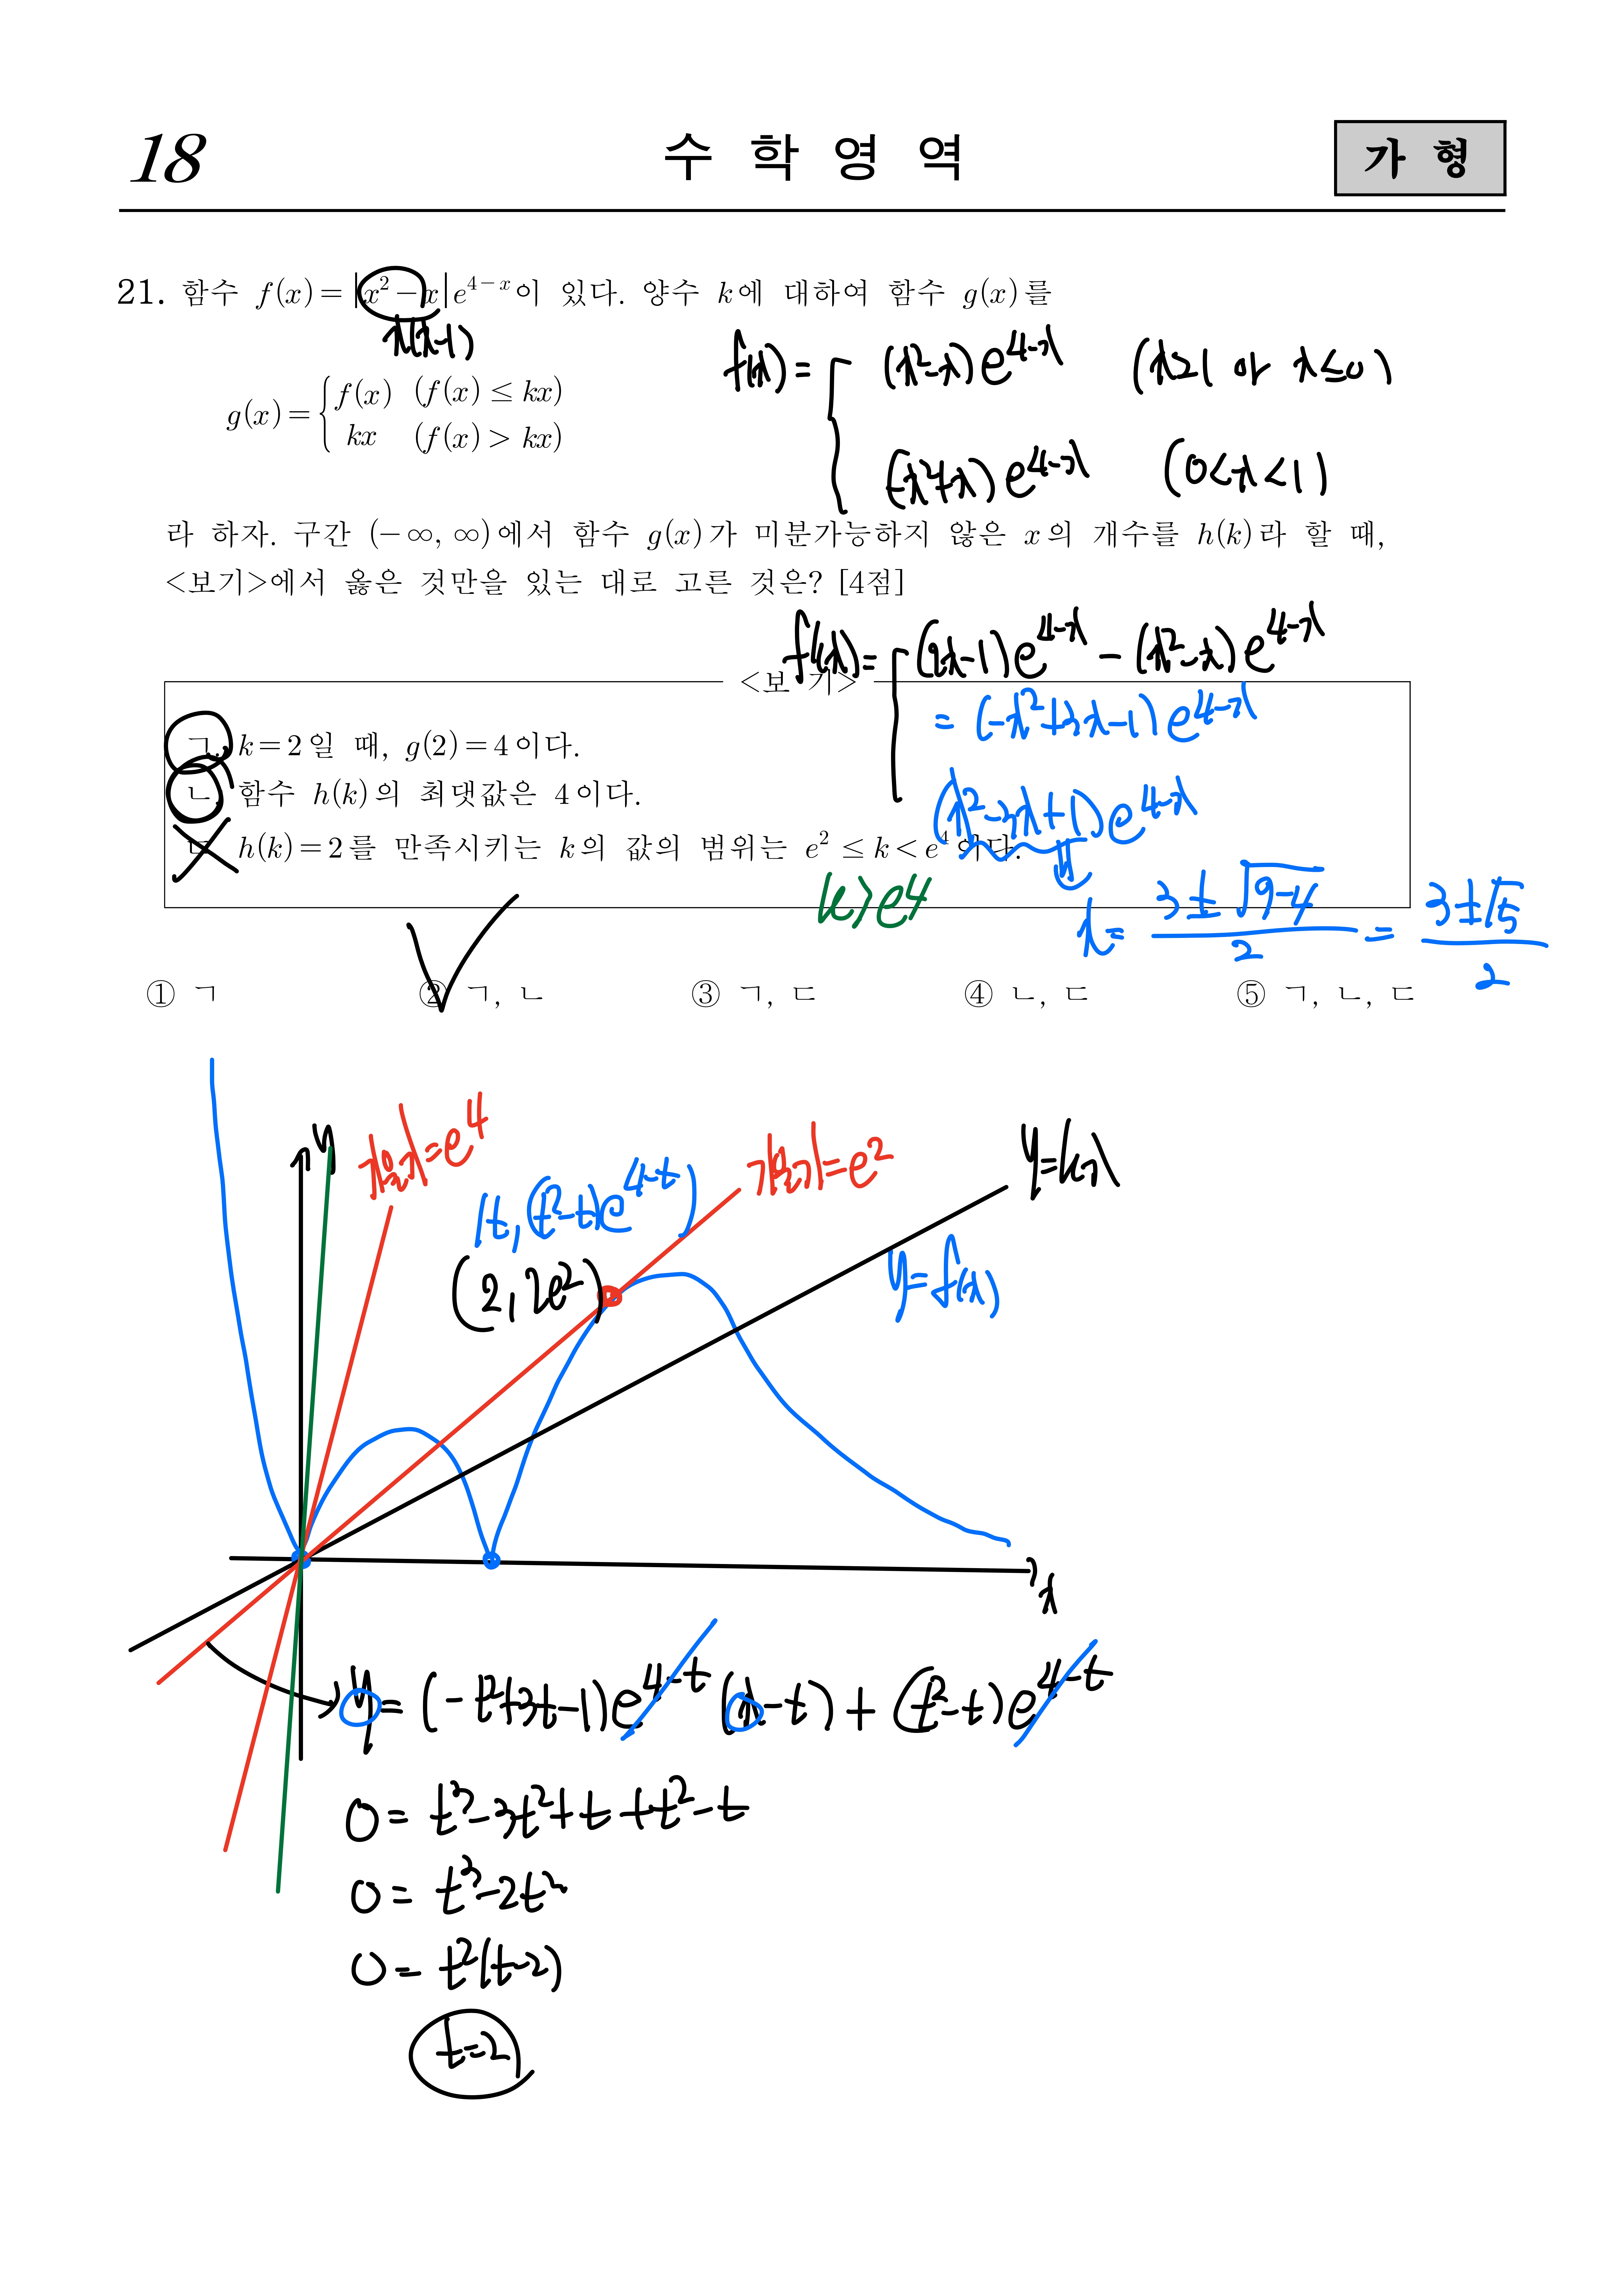 18
수 학 영 역
가 형
21. 함수 f(x)=|x²-x|e^{4-x}이 있다. 양수 k에 대하여 함수 g(x)를
x(x-1)
f(x)= { (x²-x)e^{4-x} (x≥1 or x≤0)
g(x)= { f(x) (f(x) ≤ kx)
kx (f(x) > kx)
(-x²+x)e^{4-x} (0<x<1)
라 하자. 구간 (-∞, ∞)에서 함수 g(x)가 미분가능하지 않은 x의 개수를 h(k)라 할 때,
<보기>에서 옳은 것만을 있는 대로 고른 것은? [4점]
f'(x)= { (2x-1)e^{4-x} - (x²-x)e^{4-x}
<보 기>
= (-x²+3x-1)e^{4-x}
ㄱ. k=2일 때, g(2)=4이다.
ㄴ. 함수 h(k)의 최댓값은 4이다.
(x²-3x+1)e^{4-x}
ㄷ. h(k)=2를 만족시키는 k의 값의 범위는 e² ≤ k < e⁴이다.
k>e4
x= (3±√(9-4))/2 = (3±√5)/2
① ㄱ ② ㄱ, ㄴ ③ ㄱ, ㄷ ④ ㄴ, ㄷ ⑤ ㄱ, ㄴ, ㄷ
y
기울기=e⁴
기울기=e²
y=kx
(t, (t²-t)e^{4-t})
(2, 2e²)
y=f(x)
x
y= (-t²+3t-1)e^{4-t}(x-t) + (t²-t)e^{4-t}
0= t³-3t²+t+t²-t
0= t³-2t²
0= t²(t-2)
t=2